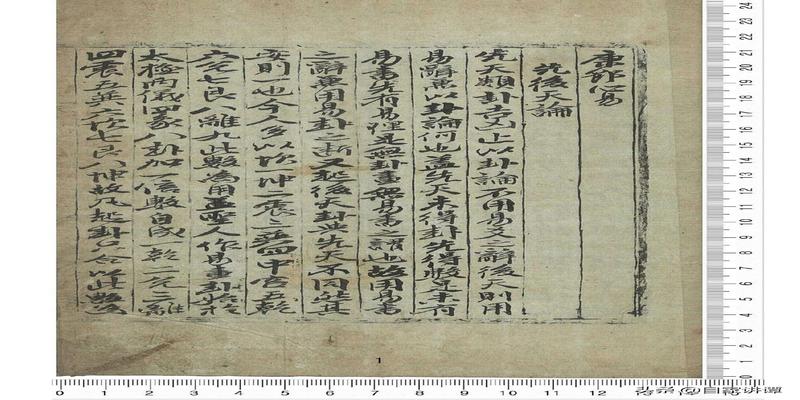 康節心易
先後天論
先天類卦吉凶止以卦論不用易爻之辭後天則用
易辭兼以卦論何也盖先天未得卦先得數是未有
易書先有易理無卦畫無易書之謂也故用易書
之辭專用易卦之斷又起後天卦与先天不同此其
則一也今人多以坎一坤二震三巽四中宮五乾
六兌七艮八離九此數為用盖聖人作易畫卦始於
太極兩儀四象八卦加一倍數自成一乾二兌三離
四震五巽六坎七艮八坤故凡起卦只合以此數為
1
0 1 2 3 4 5 6 7 8 9 10 11 12 13 14 15
0 1 2 3 4 5 6 7 8 9 10 11 12 13 14 15 16 17 18 19 20 21 22 23 24
头条@自露讲潭